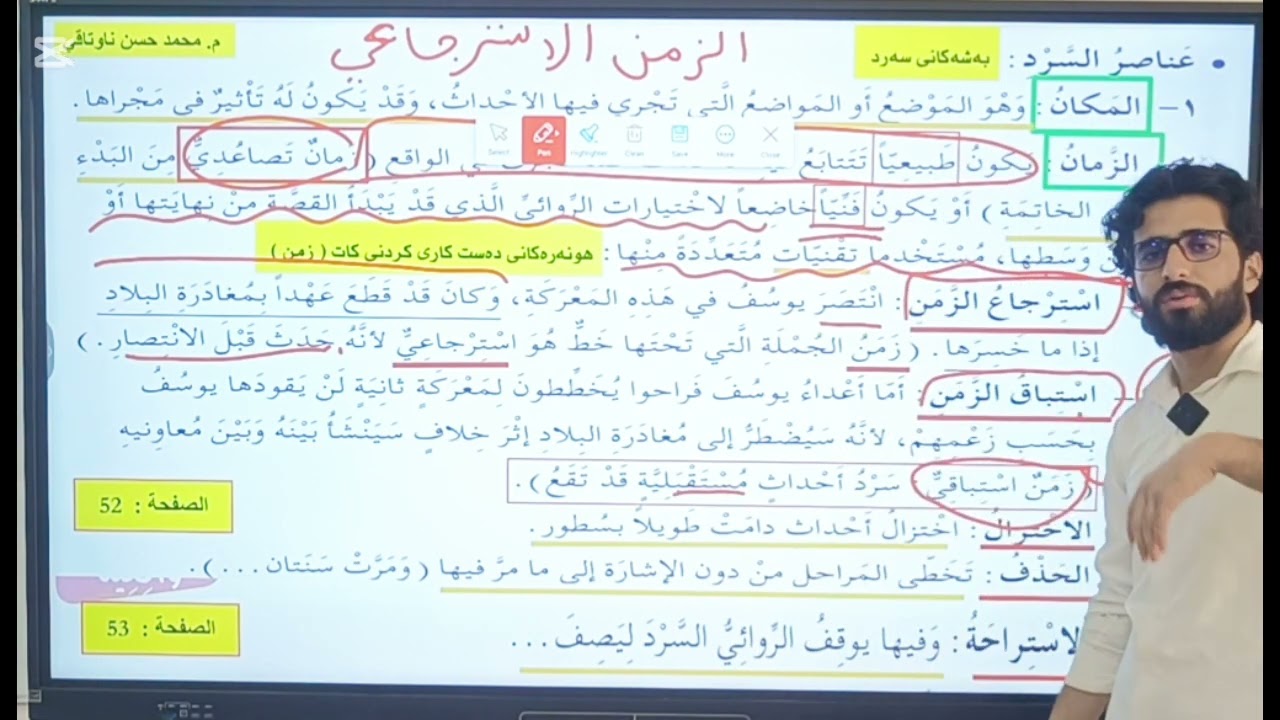 الزمن الاسترجاعي
م. محمد حسن ناوتاقي
• عَناصرُ السَّرْد : بەشەکانی سەرد
١- المَكانُ : وَهْوَ المَوْضعُ أو المَواضعُ الَّتي تَجْري فيها الأحْداثُ، وَقَدْ يَكونُ لَهُ تَأثيرٌ في مَجْراها .
الزَّمانُ : يكونُ طَبيعيّاً تَتتابَعُ الواقع ( زمانٌ تَصاعُديٌّ مِنَ البَدْءِ
الخاتِمَة ) أوْ يَكونُ فَنّيّاً خاضِعاً لاخْتيارات الرّوائيِّ الَّذي قَدْ يَبْدَأُ القصَّةَ منْ نهايَتها أوْ
وَسَطها، مُسْتَخْدما تقْنيّات مُتَعَدِّدَةً مِنْها : هونەرەکانی دەست کاری کردنی کات ( زمن )
اسْترْجاعُ الزَّمَن : انْتَصَرَ يوسُفُ في هَذِهِ المَعْرَكَةِ، وَكانَ قَدْ قَطَعَ عَهْداً بِمُغادَرَةِ البِلادِ
إذا ما خَسِرَها . ( زَمَنُ الجُمْلَةِ الَّتي تَحْتَها خطٌّ هُوَ اسْترْجاعيٌّ لأنَّهُ حَدَثَ قَبْلَ الانْتِصارِ . )
اسْتِباقُ الزَّمَنِ : أمَا أعْداءُ يوسُفَ فَراحوا يُخَطِّطونَ لِمَعْرَكَةٍ ثانِيَةٍ لَنْ يَقودَها يوسُفُ
بِحَسَبِ زَعْمِهِمْ، لأنَّهُ سَيُضْطَرُّ إلى مُغادَرَةِ البِلادِ إثْرَ خلافٍ سَيَنْشَأُ بَيْنَهُ وَبَيْنَ مُعاونِيهِ
( زَمَنٌ اسْتِباقِيٌّ سَرْدُ أحْداثٍ مُسْتَقْبَلِيَّةٍ قَدْ تَقَعُ ) .
الصفحة : 52
الاخْتزالُ : اخْتزالُ أحْداث دامَتْ طَويلاً بسُطور .
الحَذْفُ : تَخَطّى المَراحل منْ دون الإشارَة إلى ما مرَّ فيها ( وَمَرَّتْ سَنَتان ... ) .
الصفحة : 53
الاسْتِراحَةُ : وَفيها يوقِفُ الرِّوائِيُّ السَّرْدَ لِيَصِفَ ...
Select
Pen
Highlighter
Clean
Save
More
Close